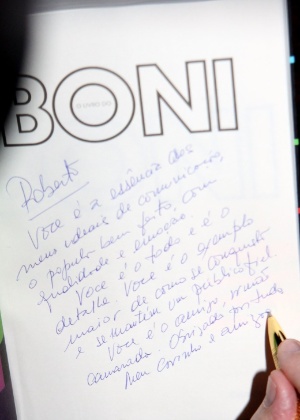 BONI
O LIVRO DO
Roberto
Você é a essência dos
meus ideais de comunicação,
o popular bem feito, com
qualidade e emoção.
Você é todo e é o
detalhe. Você é o exemplo
maior de como se conquista
e se mantém um público fiel.
Você é o amigo, irmão
camarada. Obrigado por tudo
Meu carinho e amizade